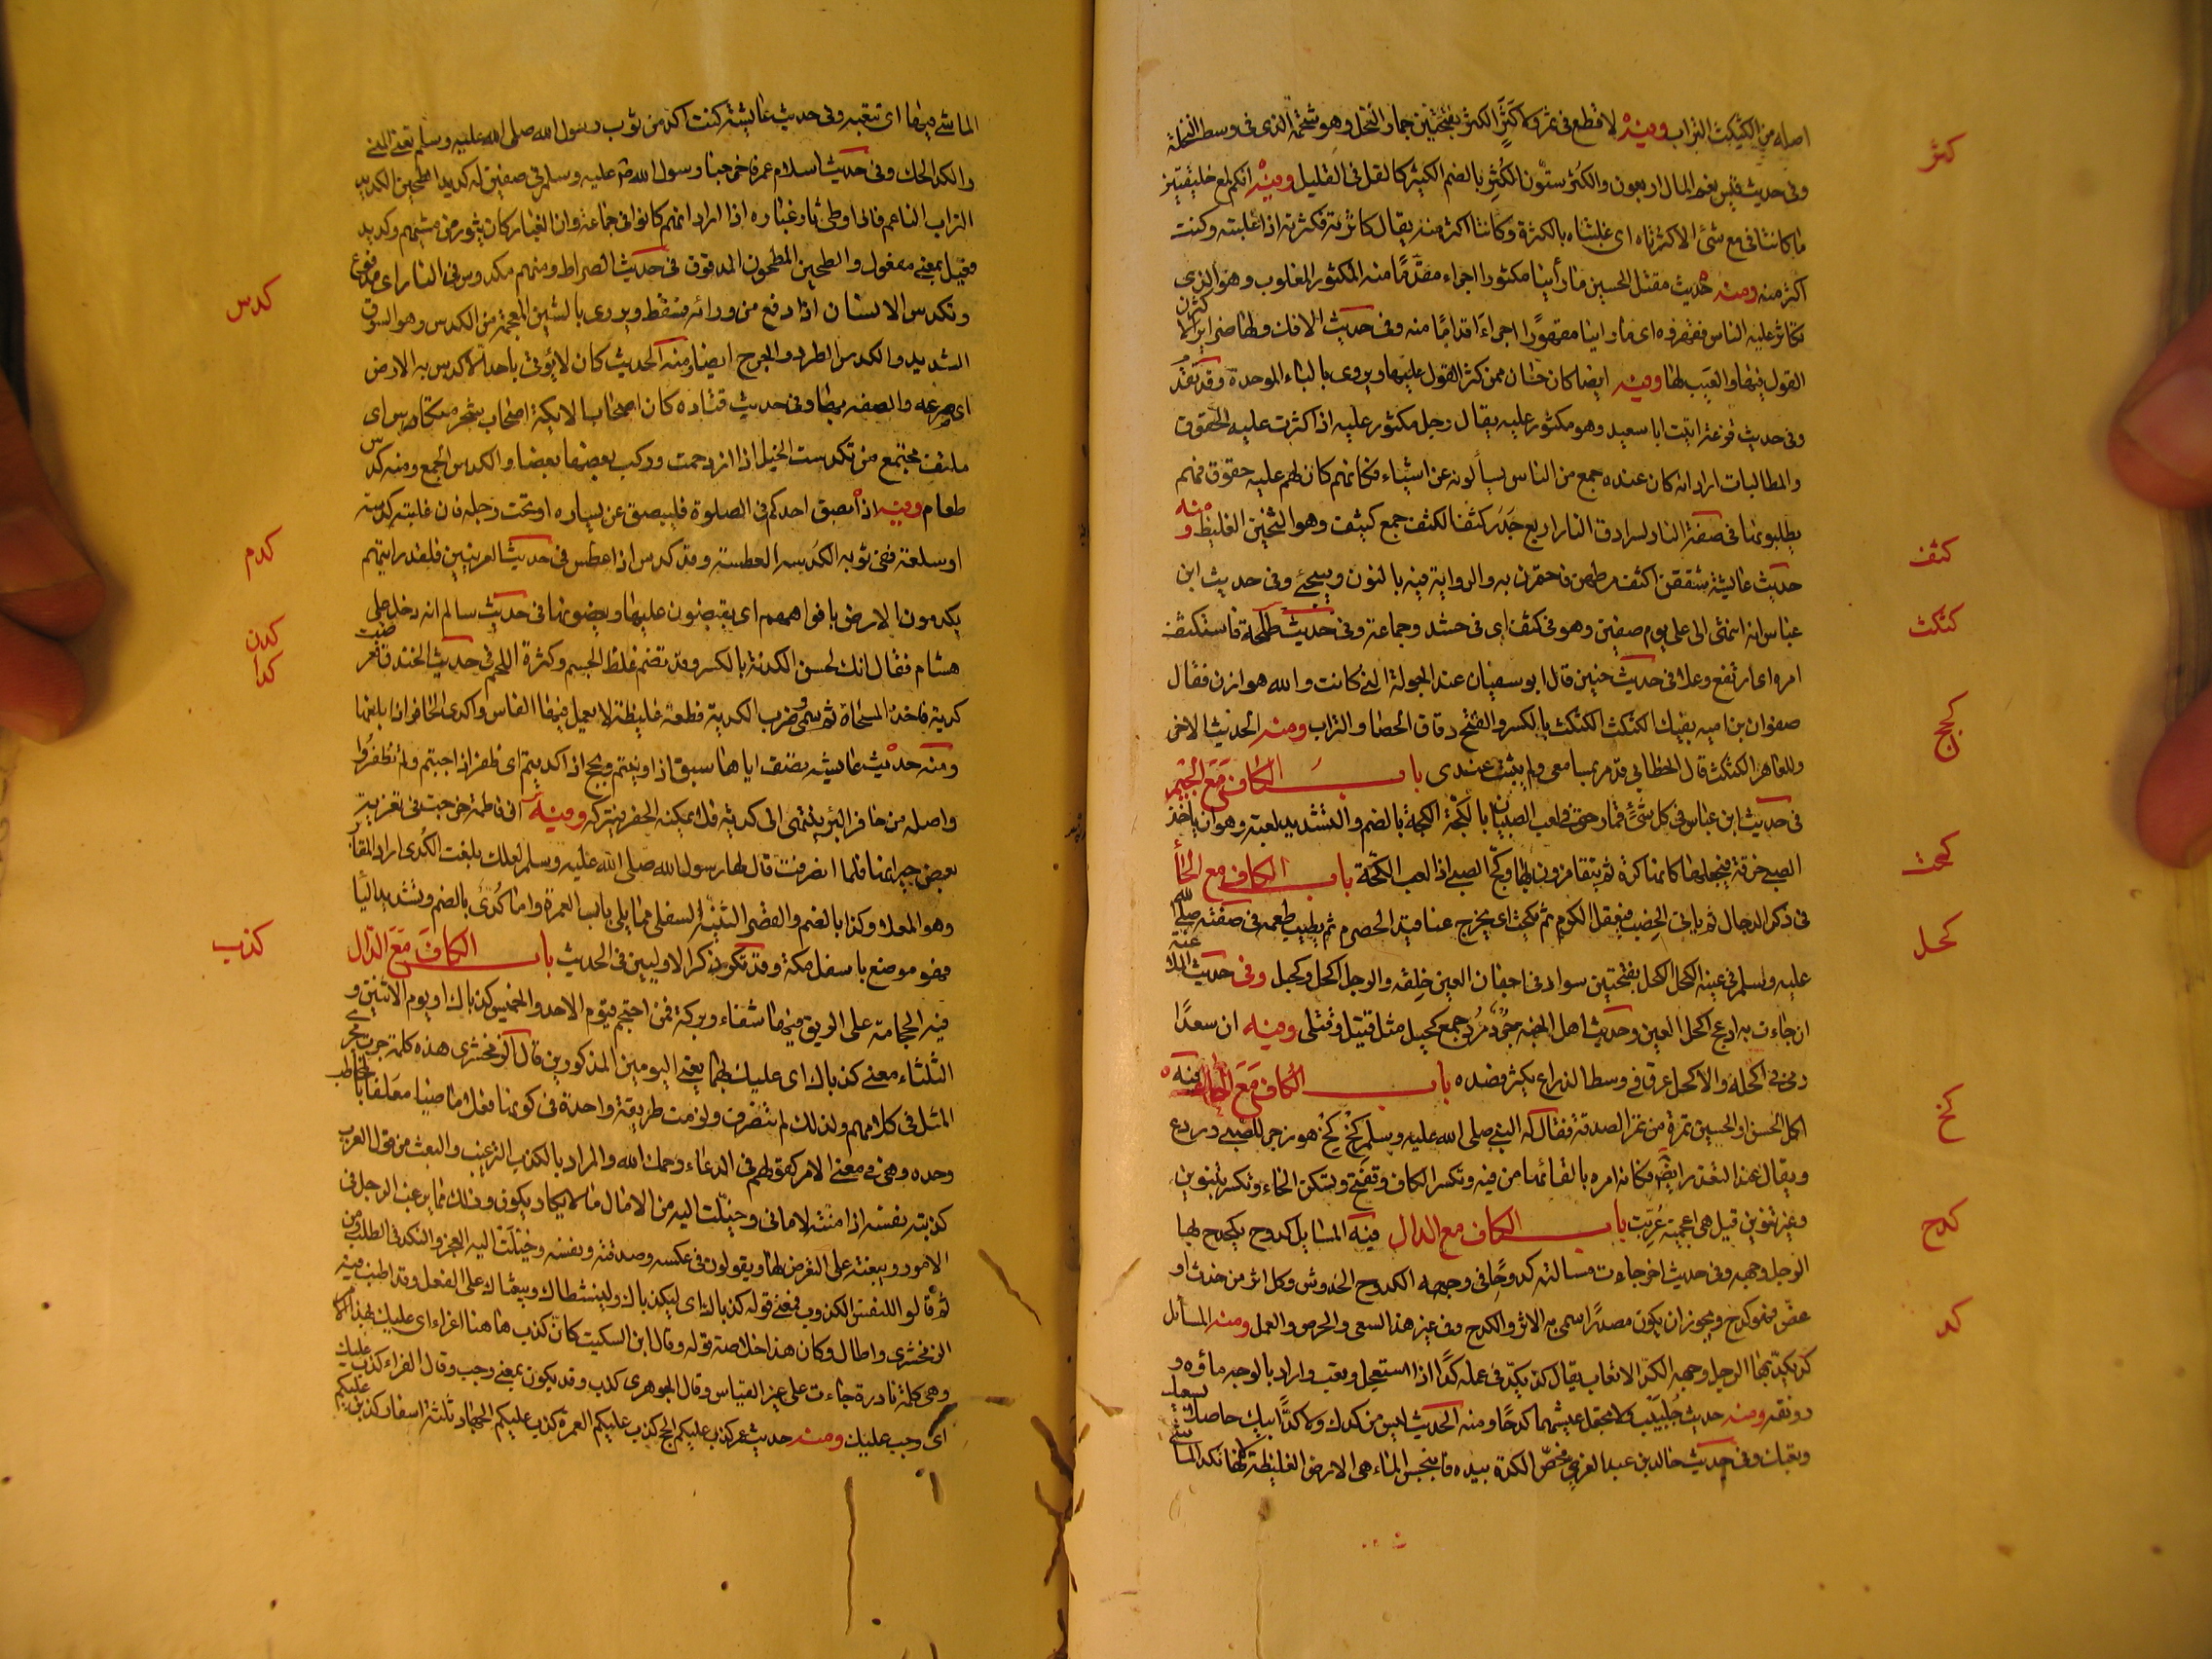 اصله من الكثكث التراب ومنه لا قطع في ثمر ولا كَثَرٍ الكثر بفتحتين جمار النخل وهو شحمه الذى فى وسط النخلة
كثر
وفى حديث قيس نعم المال اربعون والكُثر ستّون الكُثر بالضم الكثير كالقل فى القليل ومنه انكم لمع خليقتين
ما كانتا فى مع شئ الا كثرتاه اى غلبتاه بالكثرة وكانتا اكثر منه يقال كاثرته فكثرته اذا غلبته وكنت
اكثر منه ومنه حديث مقتل الحسين ما رأينا مكثورا اجراء مقدَّمًا منه المكثور المغلوب وهو الذى
تكاثر عليه الناس فقهروه اى ما راينا مقهورًا اجراء اقدامًا منه وفى حديث الافك ولها ضراير الا كثرن
القول فيها والعيب لها ومنه ايضا كان حسّان ممن كثر القول عليها ويروى بالباء الموحدة وقد تقدّم
وفى حديث قزعة اتيت ابا سعيد وهو مكثور عليه يقال رجل مكثور عليه اذا كثرت عليه الحقوق
والمطالبات اراد انه كان عنده جمع من الناس يسألونه عن اشياء فكانهم كان لهم عليه حقوق فهم
يطلبونها فى صفة النار لسرادق النار اربع جُدُر كثف الكثف جمع كثيف وهو الثخين الغليظ ومنه
كثف
حديث عائشة شققن اكثف مروطهن فاختمرن به والرواية فيه بالنون وسيجئ وفى حديث ابن
عباس انه انتهى الى على يوم صفين وهو فى كثف اى فى حشد وجماعة وفى حديث طليحة فاستكثف
كثكث
امره اى ارتفع وعلا فى حديث حنين قال ابو سفيان عند الجولة التى كانت والله هوازن فقال
صفوان بن اميه بفيك الكثكث الكثكث بالكسر والفتح دقاق الحصا والتراب ومنه الحديث الاخر
كجج
وللعاهر الكثكث قال الخطابى قد مر بمسامعى ولم يثبت عندى باب الكاف مَعَ الجيم
فى حديث ابن عباس فى كل شئ قمار حتى فى لعب الصبيان بالكجة الكجة بالضم والتشديد لعبة وهو ان ياخذ
الصبى خرقة فيجعلها كانها كرة ثم يتقامرون بها وكجّ الصبى اذا لعب الكجّة باب الكاف مع الحاء
كحث
فى ذكر الدجال ثم ياتى الخصب فيعقل الكرم ثم يكحث اى يخرج عناقيد الحصرم ثم يطيب طعمه فى صفته صلى الله
كحل
عليه وسلم فى عينه الكحل الكحل بفتحتين سواد فى اجفان العين خلقة والرجل اكحل وكحيل وفى حديث الملاعنة
ان جاءت به ادعج اكحل العين وحديث اهل الجنة جُردٌ مُردٌ جمع كحيل مثل قتيل وقتلى ومنه ان سعدًا
رمى فى اكحله والاكحل عرق فى وسط الذراع يكثر فصده باب الكاف مَعَ الخاء فيه
كخ
اكل الحسن او الحسين تمرة من تمر الصدقة فقال له النبى صلى الله عليه وسلم كَخْ كِخْ هو زجر للصبى وردع
ويقال عند التقذر ايضا فكانه امره بالقائها من فيه وتكسر الكاف وتفتح وتسكن الخاء وتكسر بتنوين
وغير تنوين قيل هى اعجمية عُرّبت باب الكاف مع الدال فيه المسايل كدوح يكدح بها
كدح
الرجل وجهه وفى حديث اخر جاءت مسالته كدوحًا فى وجهه الكدوح الخدوش وكل اثر من خدش او
عضّ فهو كدح ويجوز ان يكون مصدرًا سمى به الاثر والكدح فى غير هذا السعى والحرص والعمل ومنه المسائل
كد
كدّ يكدّ بها الرجل وجهه الكدّ الاتعاب يقال كدّ يكدّ فى عمله كدًّا اذا استعجل وتعب واراد بالوجه ماؤه و
رونقه ومنه حديث جُليبيب ولا تجعل عيشهما كدًّا ومنه الحديث ليس من كدك ولا كدّ ابيك حاصلك بسعيك
وتعبك وفى حديث خالد بن عبد العزى فحصّ الكدة بيده فانبجس الماء هى الارض الغليظة لانها تكد الماشى
الماشى فيها اى تتعبه وفى حديث عائشة كنت اكده من ثوب رسول الله صلى الله عليه وسلم تعنى المنى
والكد الحك وفى حديث اسلام عمر فاخرجنا رسول الله صلى عليه وسلم فى صفين له كديد الطحين الكديد
التراب الناعم فاذا وطى ثار غباره اذا اراد انهم كانوا فى جماعة وان الغبار كان يثور من مشيهم وكديد
فعيل بمعنى مفعول والطحين المطحون المدقوق فى حديث الصراط ومنهم مكدوس فى النار اى مدفوع
كدس
وتكدس الانسان اذا دفع من ورائه فسقط ويروى بالشين المعجمة من الكدش وهو السوق
الشديد والكدش الطرد والجرح ايضا ومنه الحديث كان لا يُؤتى باحد الا كدس به الارض
اى صرعه والصقه بها وفى حديث قتاده كان اصحاب الايكة اصحاب شجر متكادس اى
ملتف مجتمع من تكدست الخيل اذا ازدحمت وركب بعضها بعضا والكدس الجمع ومنه كدس
طعام ومنه اذا بصق احدكم فى الصلوة فليبصق عن يساره او تحت رجله فان غلبته كدسة
او سعلة ففى ثوبه الكدسة العطسة وقد كدس اذا عطس فى حديث العرنيين فلقد رايتهم
كدم
يكدمون الارض بافواههم اى يقبضون عليها ويعضونها فى حديث سالم انه دخل على
كدن
هشام فقال انك لحسن الكدنة بالكسر وقد تضم غلظ الجسم وكثرة اللحم فى حديث الخندق فعرضت
كدا
كدية فاخذ المسحاة ثم سمى وضرب الكدية قطعة غليظة لا يعمل فيها الفاس واكدى الحافر اذا بلغها
ومنه حديث عائشة تصف اباها سبق اذ ونيتم ونجح اذ اكديتم اى ظفر اذ خبتم ولم تظفروا
واصله من حافر البئر ينتهى الى كدية فلا يمكنه الحفر فيتركه ومنه ان فاطمة خرجت فى تعزية
بعض جيرانها فلما انصرفت قال لها رسول الله صلى الله عليه وسلم لعلك بلغت الكُدى اراد المقابر
وهو المعلا وكدا بالضم والقصر الثنيّة السفلى مما يلى باب العمرة واما كُدَىّ بالضم وتشديد اليا
فهو موضع باسفل مكة وقد تكرر ذكر الاوليين فى الحديث باب الكافَ مَعَ الذال
كذب
فيه الحجامة على الريق فيها شفاء وبركة فمن احتجم فيوم الاحد والخميس كذباك او يوم الاثنين و
الثلثاء معنى كذباك اى عليك بهما يعنى اليومين المذكورين قال الزمخشرى هذه كلمة جرت مجرى
المثل فى كلامهم ولذلك لم تتصرف ولزمت طريقة واحدة فى كونها فعلا ماضيا معلقا بالمخاطب
وحده وهى فى معنى الامر كقولهم فى الدعاء رحمك الله والمراد بالكذب الترغيب والبعث من قول العرب
كذبته نفسه اذا منته الامانى وخيّلت اليه من الامال ما لا يكاد يكون وذلك مما يرغب الرجل فى
الامور ويبعثه على التعرض لها ويقولون فى عكسه وصدقته نفسه وخيّلت اليه العجز والنكد فى الطلب ومن
ثم قالوا للنفس الكذوب فمعنى قوله كذباك اى ليكذباك ولينشطاك ويبعثاك على الفعل وقد اطنب فيه
الزمخشرى واطال وكان هذا خلاصة قوله وقال ابن السكيت كانّ كذب هاهنا اغراء اى عليك بهذا الامر
وهى كلمة نادرة جاءت على غير القياس وقال الجوهرى كذب وقد يكون بمعنى وجب وقال الفراء كذب عليك
اى وجب عليك ومنه حديث عمر كذب عليكم الحج كذب عليكم العمرة كذب عليكم الجهاد ثلثة اسفار كذبن عليكم